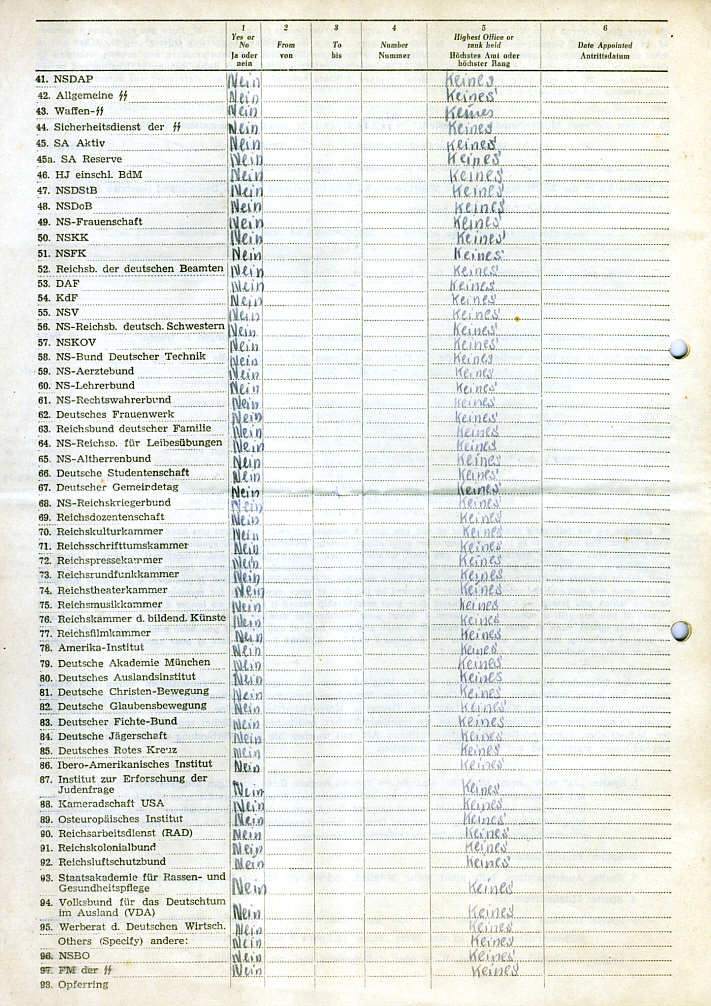 1 2 3 4 5 6
Yes or No From To Number Highest Office or rank held Date Appointed
Ja oder nein von bis Nummer Höchstes Amt oder höchster Rang Antrittsdatum
41. NSDAP Nein Keines
42. Allgemeine SS Nein Keines
43. Waffen-SS Nein Keines
44. Sicherheitsdienst der SS Nein Keines
45. SA Aktiv Nein Keines
45a. SA Reserve Nein Keines
46. HJ einschl. BdM Nein Keines
47. NSDStB Nein Keines
48. NSDoB Nein Keines
49. NS-Frauenschaft Nein Keines
50. NSKK Nein Keines
51. NSFK Nein Keines
52. Reichsb. der deutschen Beamten Nein Keines
53. DAF Nein Keines
54. KdF Nein Keines
55. NSV Nein Keines
56. NS-Reichsb. deutsch. Schwestern Nein Keines
57. NSKOV Nein Keines
58. NS-Bund Deutscher Technik Nein Keines
59. NS-Aerztebund Nein Keines
60. NS-Lehrerbund Nein Keines
61. NS-Rechtswahrerbund Nein Keines
62. Deutsches Frauenwerk Nein Keines
63. Reichsbund deutscher Familie Nein Keines
64. NS-Reichsb. für Leibesübungen Nein Keines
65. NS-Altherrenbund Nein Keines
66. Deutsche Studentenschaft Nein Keines
67. Deutscher Gemeindetag Nein Keines
68. NS-Reichskriegerbund Nein Keines
69. Reichsdozentenschaft Nein Keines
70. Reichskulturkammer Nein Keines
71. Reichsschrifttumskammer Nein Keines
72. Reichspressekammer Nein Keines
73. Reichsrundfunkkammer Nein Keines
74. Reichstheaterkammer Nein Keines
75. Reichsmusikkammer Nein Keines
76. Reichskammer d. bildend. Künste Nein Keines
77. Reichsfilmkammer Nein Keines
78. Amerika-Institut Nein Keines
79. Deutsche Akademie München Nein Keines
80. Deutsches Auslandsinstitut Nein Keines
81. Deutsche Christen-Bewegung Nein Keines
82. Deutsche Glaubensbewegung Nein Keines
83. Deutscher Fichte-Bund Nein Keines
84. Deutsche Jägerschaft Nein Keines
85. Deutsches Rotes Kreuz Nein Keines
86. Ibero-Amerikanisches Institut Nein Keines
87. Institut zur Erforschung der
Judenfrage Nein Keines
88. Kameradschaft USA Nein Keines
89. Osteuropäisches Institut Nein Keines
90. Reichsarbeitsdienst (RAD) Nein Keines
91. Reichskolonialbund Nein Keines
92. Reichsluftschutzbund Nein Keines
93. Staatsakademie für Rassen- und
Gesundheitspflege Nein Keines
94. Volksbund für das Deutschtum
im Ausland (VDA) Nein Keines
95. Werberat d. Deutschen Wirtsch. Nein Keines
Others (Specify) andere: Nein Keines
96. NSBO Nein Keines
97. FM der SS Nein Keines
98. Opferring